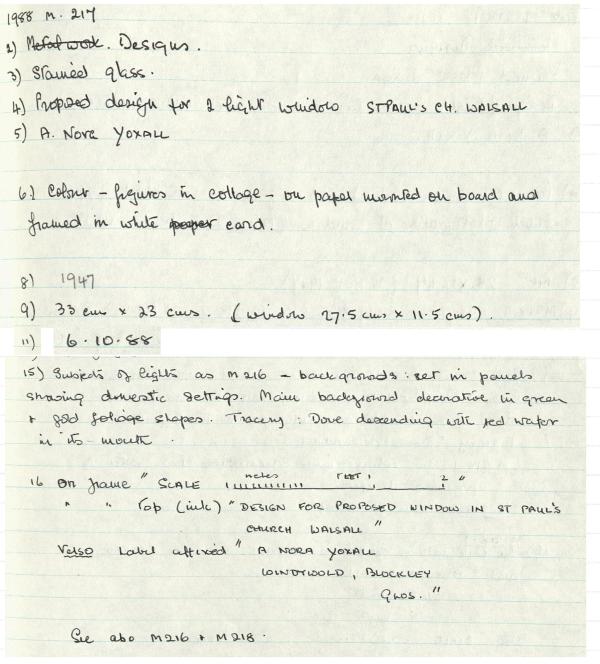 1988 M. 217
2) Metal work. Designs.
3) Stained glass.
4) Proposed design for 2 light window ST PAUL'S CH. WALSALL
5) A. Nora YOXALL
6) Colour - figures in collage - on paper mounted on board and
framed in white paper card.
8) 1947
9) 33 cms x 23 cms. (window 27.5 cms x 11.5 cms).
11) 6.10.88
15) Subjects of lights as M216 - backgrounds: set in panels
showing domestic settings. Main background decorative in green
+ gold foliage shapes. Tracery: Dove descending with red wafer
in its mouth.
16 On frame " SCALE inches FEET 1 2 "
" " Top (ink) " DESIGN FOR PROPOSED WINDOW IN ST PAUL'S
CHURCH WALSALL "
Verso Label affixed " A NORA YOXALL
WINDYWOLD, BLOCKLEY
GLOS. "
See also M216 + M218.